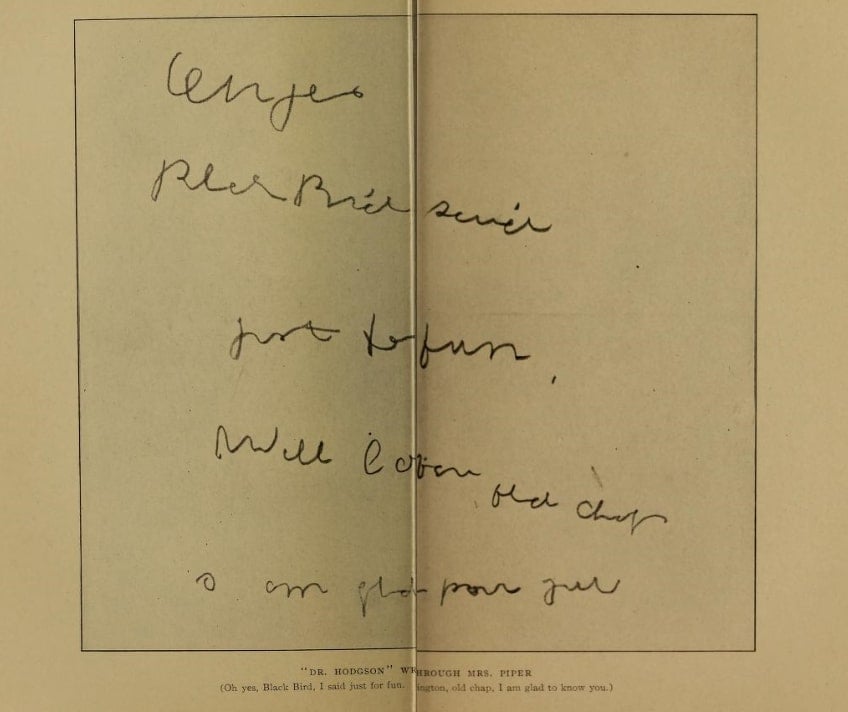 Oh yes
Black Bird said
just for fun,
Well old chap
am glad you
"DR. HODGSON" THROUGH MRS. PIPER
(Oh yes, Black Bird, I said just for fun. ington, old chap, I am glad to know you.)